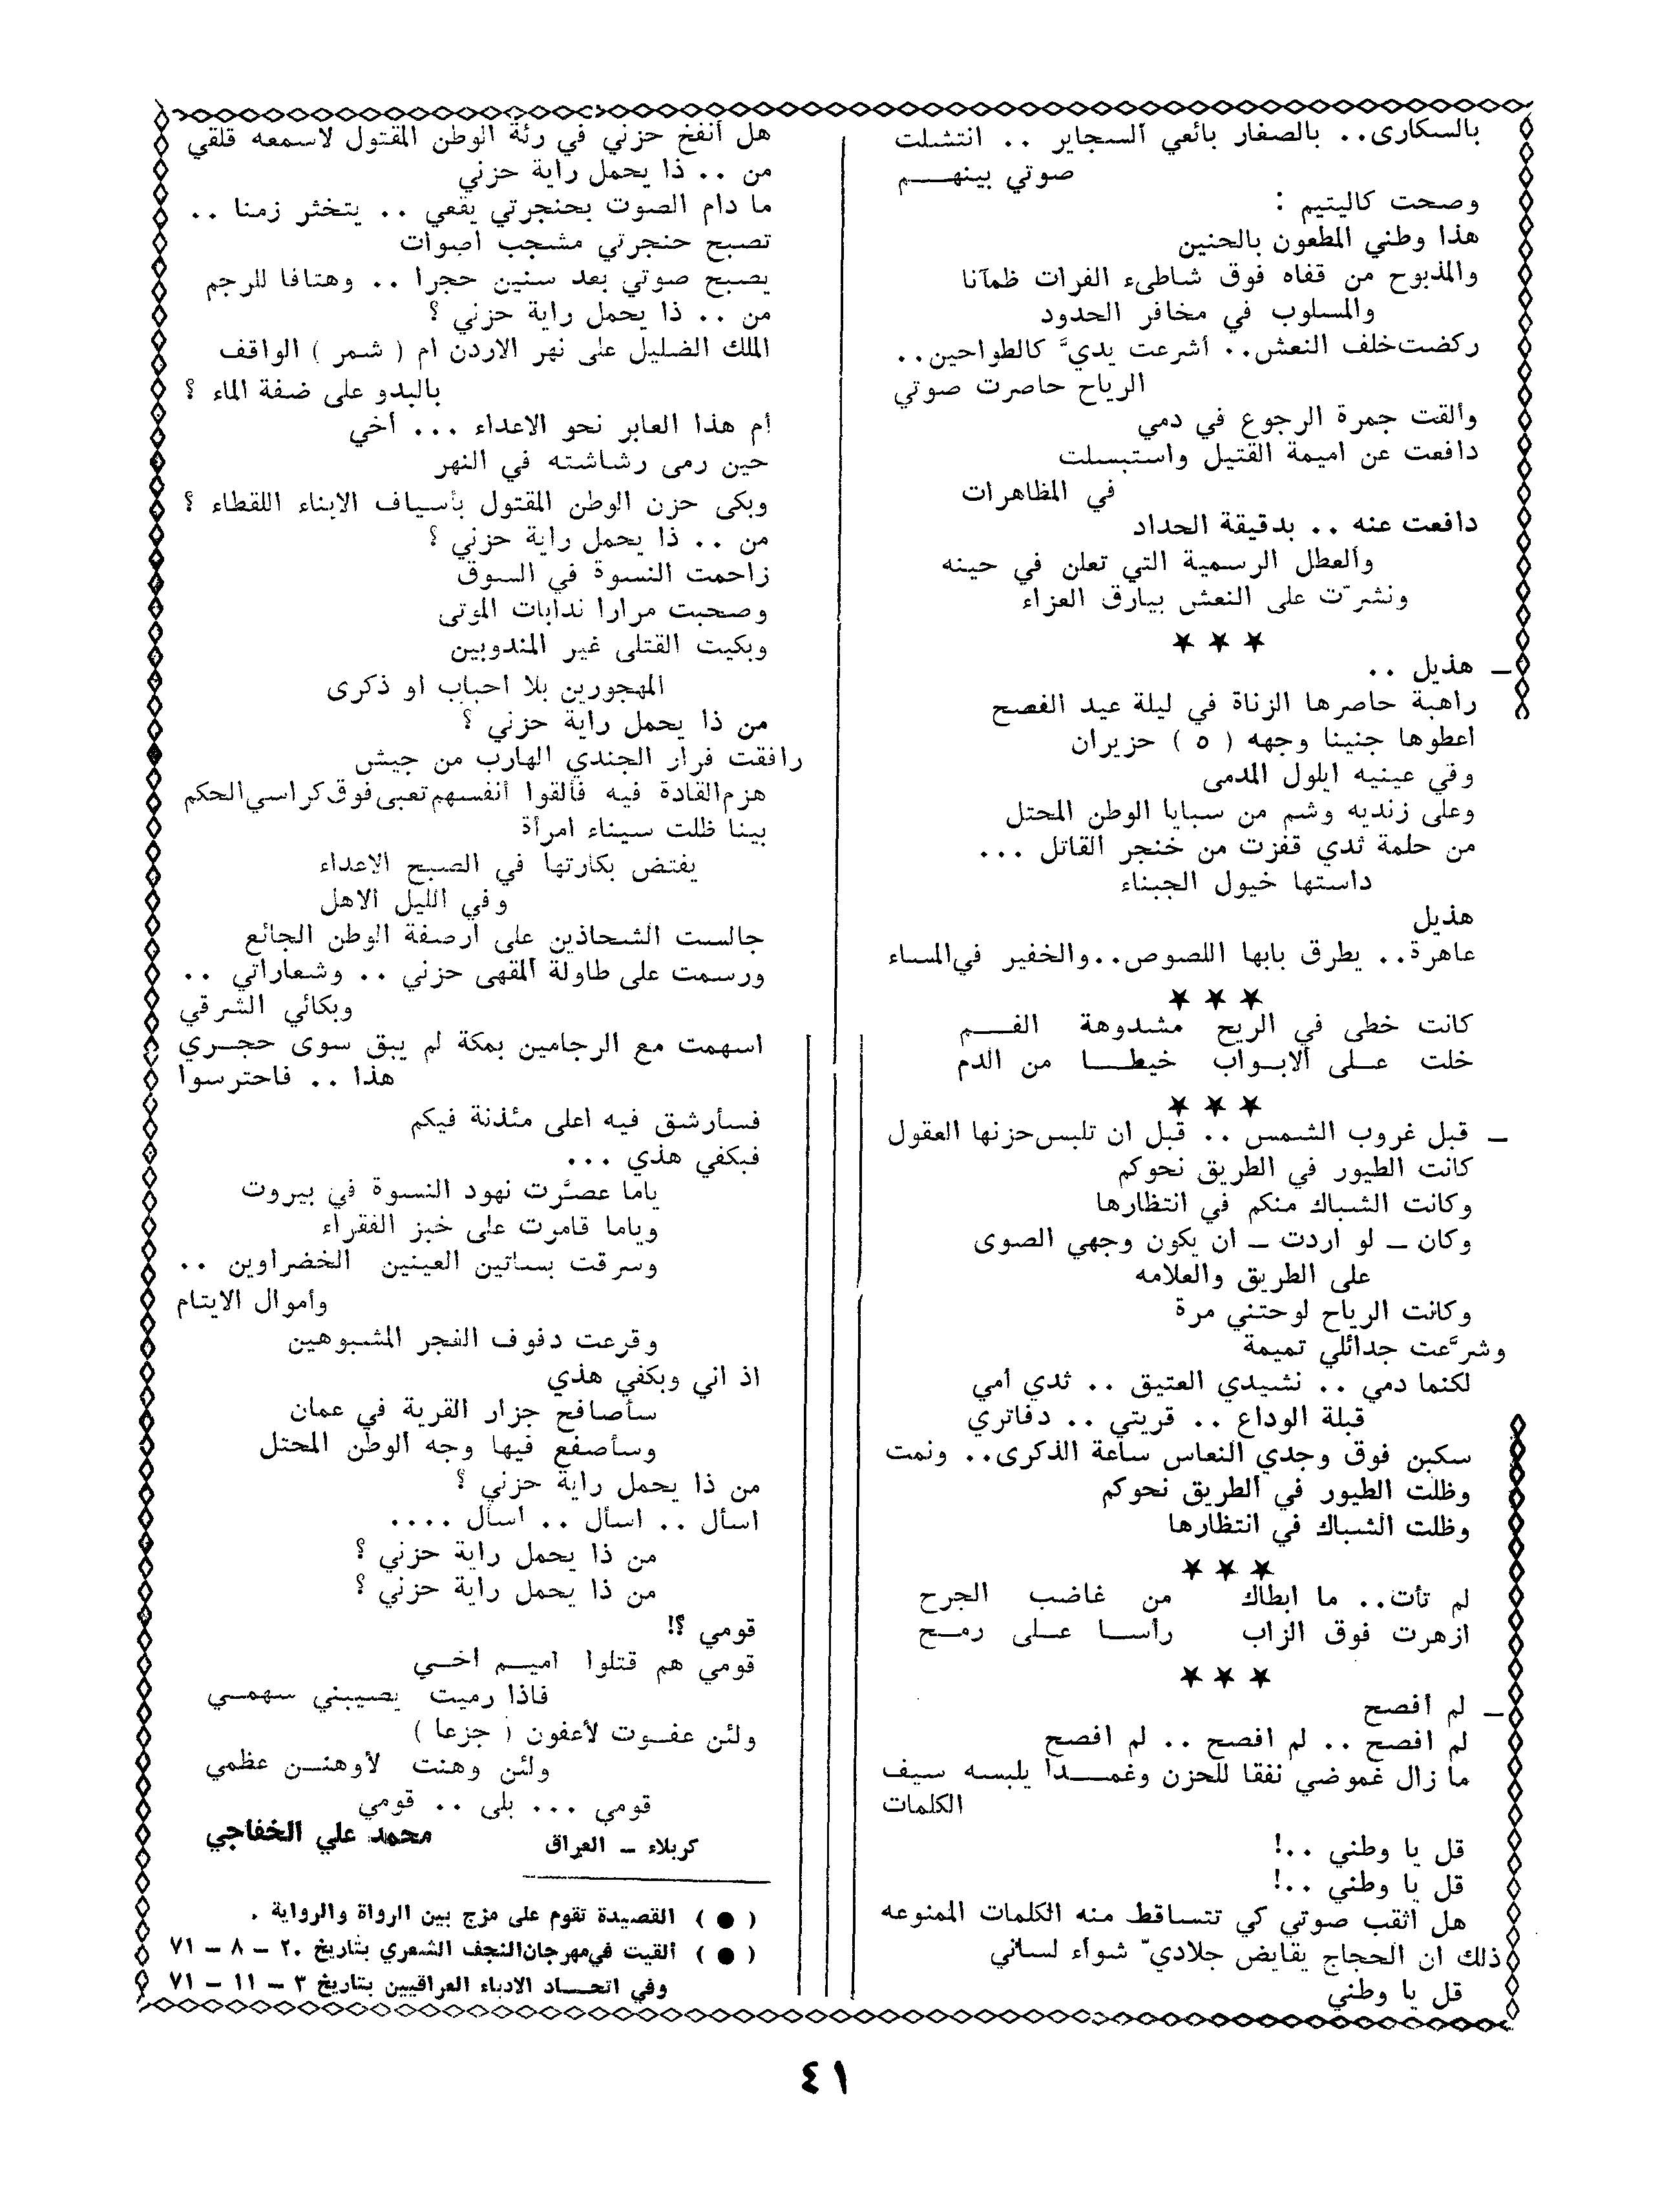 بالسكارى.. بالصغار بائعي السجاير .. انتشلت
صوتي بينهـــم
وصحت كاليتيم :
هذا وطني المطعون بالحنين
والمذبوح من قفاه فوق شاطىء الفرات ظمآنا
والمسلوب في مخافر الحدود
ركضت خلف النعش.. أشرعت يديَّ كالطواحين..
الرياح حاصرت صوتي
وألقت جمرة الرجوع في دمي
دافعت عن اميمة القتيل واستبسلت
في المظاهرات
دافعت عنه .. بدقيقة الحداد
والعطل الرسمية التي تعلن في حينه
ونشرّت على النعش بيارق العزاء
★ ★ ★
ـ هذيل ..
راهبة حاصرها الزناة في ليلة عيد الفصح
اعطوها جنينا وجهه ( ٥ ) حزيران
وفي عينيه ايلول المدمى
وعلى زنديه وشم من سبايا الوطن المحتل
من حلمة ثدي قفزت من خنجر القاتل ...
داستها خيول الجبناء
هذيل
عاهرة.. يطرق بابها اللصوص..والخفير في المساء
★ ★ ★
كانت خطى في الريح مشدوهة الفـــم
خلت علـى الابـواب خيطـــا من الدم
★ ★ ★
ـ قبل غروب الشمس .. قبل ان تلبس حزنها العقول
كانت الطيور في الطريق نحوكم
وكانت الشباك منكم في انتظارها
وكان ـ لو اردت ـ ان يكون وجهي الصوى
على الطريق والعلامه
وكانت الرياح لوحتني مرة
وشرَّعت جدائلي تميمة
لكنما دمي .. نشيدي العتيق .. ثدي أمي
قبلة الوداع .. قريتي .. دفاتري
سكبن فوق وجدي النعاس ساعة الذكرى.. ونمت
وظلت الطيور في الطريق نحوكم
وظلت الشباك في انتظارها
★ ★ ★
لم تأت.. ما ابطاك من غاضب الجرح
ازهرت فوق الزاب رأسـا علـى رمـح
★ ★ ★
ـ لم أفصح
لم افصح .. لم افصح .. لم افصح
ما زال غموضي نفقا للحزن وغمـــدا يلبسه سيف
الكلمات
قل يا وطني ..!
قل يا وطني ..!
هل اثقب صوتي كي تتساقط منه الكلمات الممنوعه
ذلك ان الحجاج يقايض جلاديّ شواء لساني
قل يا وطني
هل أنفخ حزني في رئة الوطن المقتول لاسمعه قلقي
من .. ذا يحمل راية حزني
ما دام الصوت بحنجرتي يقعي .. يتخثر زمنا ..
تصبح حنجرتي مشجب اصوات
يصبح صوتي بعد سنين حجرا .. وهتافا للرجم
من .. ذا يحمل راية حزني ؟
الملك الضليل على نهر الاردن ام ( شمر ) الواقف
بالبدو على ضفة الماء ؟
أم هذا العابر نحو الاعداء ... أخي
حين رمى رشاشته في النهر
وبكى حزن الوطن المقتول بأسياف الابناء اللقطاء ؟
من .. ذا يحمل راية حزني ؟
زاحمت النسوة في السوق
وصحبت مرارا ندابات الموتى
وبكيت القتلى غير المندوبين
المهجورين بلا احباب او ذكرى
من ذا يحمل راية حزني ؟
رافقت فرار الجندي الهارب من جيش
هزم القادة فيه فألقوا أنفسهم تعبى فوق كراسي الحكم
بينا ظلت سيناء امرأة
يفتض بكارتها في الصبح الاعداء
وفي الليل الاهل
جالست الشحاذين على أرصفة الوطن الجائع
ورسمت على طاولة المقهى حزني .. وشعاراتي ..
وبكائي الشرقي
اسهمت مع الرجامين بمكة لم يبق سوى حجــري
هذا .. فاحترسوا
فسأرشق فيه اعلى مئذنة فيكم
فبكفي هذي ...
ياما عصَّرت نهود النسوة في بيروت
وياما قامرت على خبز الفقراء
وسرقت بساتين العينين الخضراوين ..
وأموال الايتام
وقرعت دفوف الفجر المشبوهين
اذ اني وبكفي هذي
سأصافح جزار القرية في عمان
وسأصفع فيها وجه الوطن المحتل
من ذا يحمل راية حزني ؟
اسأل .. اسأل .. اسأل ....
من ذا يحمل راية حزني ؟
من ذا يحمل راية حزني ؟
قومي ؟!
قومي هم قتلوا اميـم اخـي
فاذا رميت يصيبني سهمـي
ولئن عفـوت لأعفون ( جزعا )
ولئن وهنت لأوهنـن عظمي
قومي ... بلى .. قومي
كربلاء ـ العراق محمد علي الخفاجي
( ● ) القصيدة تقوم على مزج بين الرواة والرواية .
( ● ) ألقيت في مهرجان النجف الشعري بتاريخ ٢٠ ـ ٨ ـ ٧١
وفي اتحـــاد الادباء العراقيين بتاريخ ٣ ـ ١١ ـ ٧١
٤١